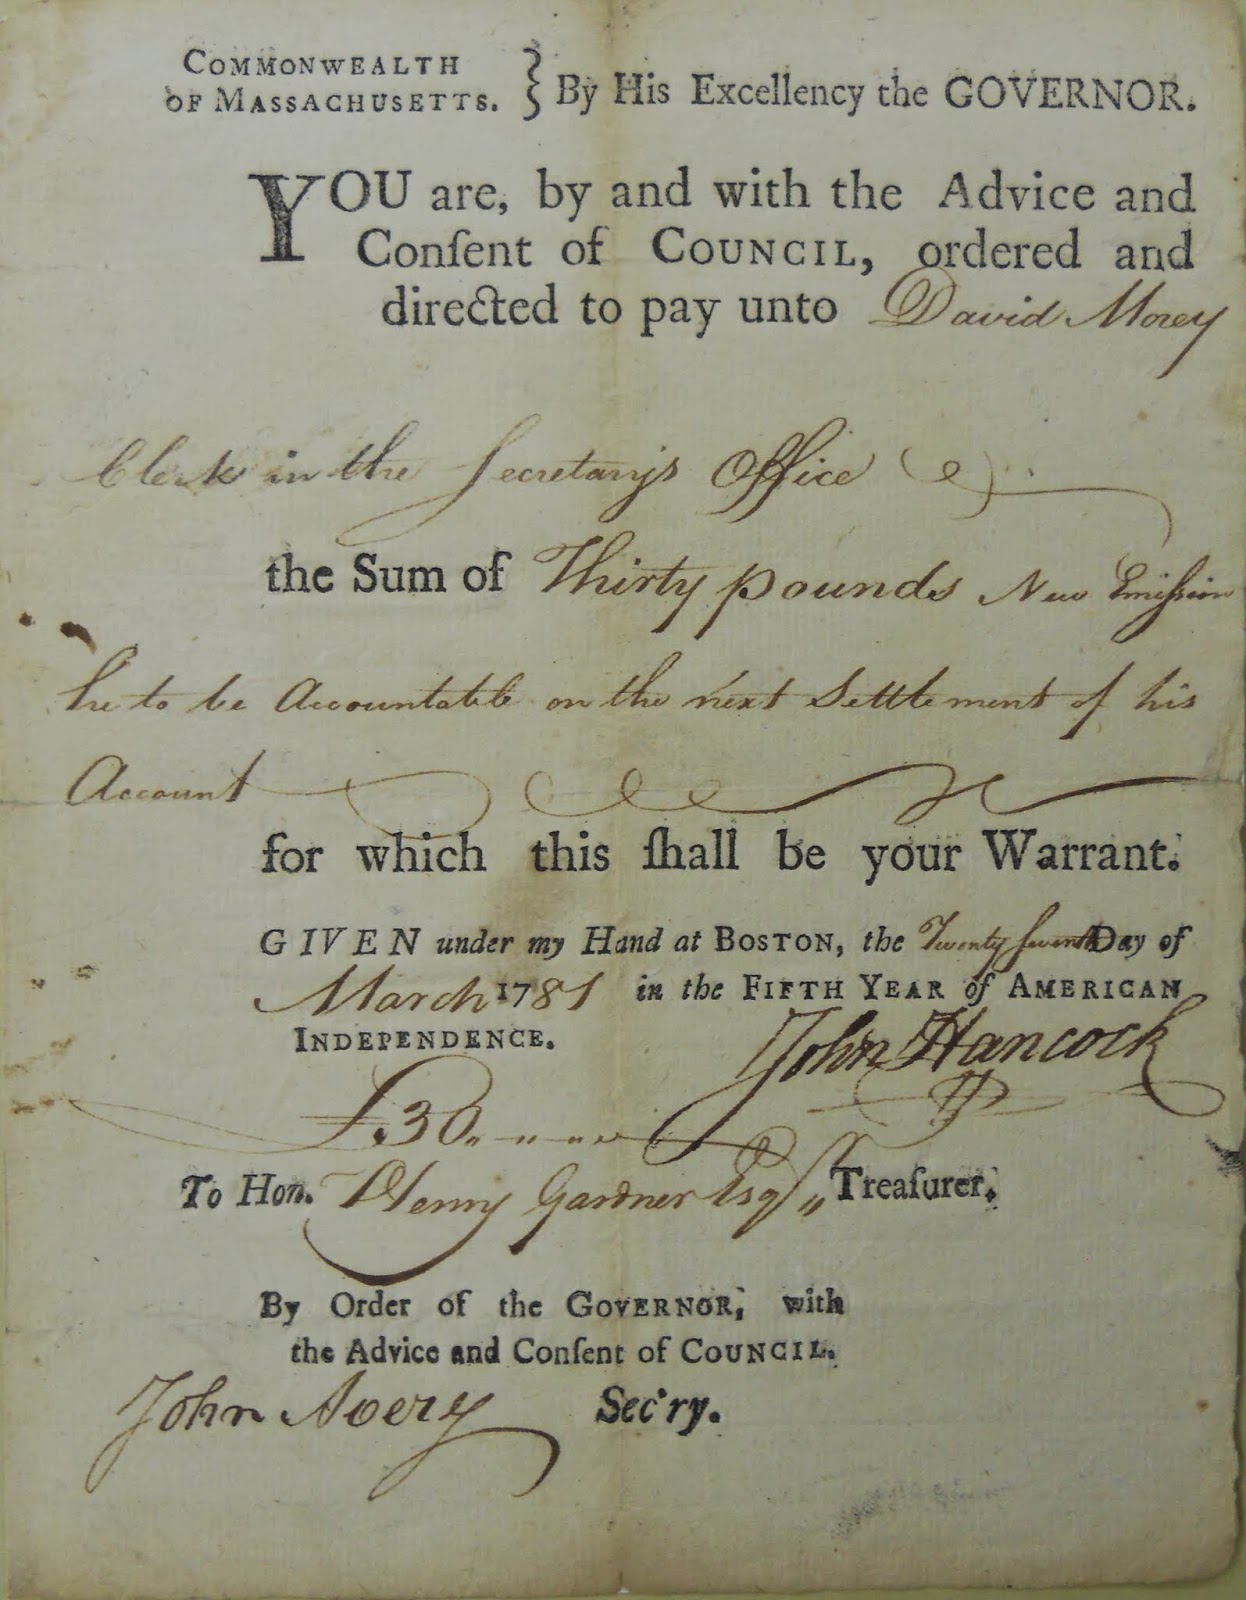 COMMONWEALTH
OF MASSACHUSETTS. } By His Excellency the GOVERNOR.
YOU are, by and with the Advice and
Conſent of COUNCIL, ordered and
directed to pay unto David Morey
Clerk in the Secretary's Office
the Sum of Thirty pounds New Emiſsion
he to be Accountable on the next Settlement of his
Account
for which this ſhall be your Warrant.
GIVEN under my Hand at BOSTON, the Twenty ſeventh Day of
March 1781 in the FIFTH YEAR of AMERICAN
INDEPENDENCE.
John Hancock
£.30
To Hon. Henry Gardner Esqr Treaſurer.
By Order of the GOVERNOR, with
the Advice and Conſent of COUNCIL.
John Avery Sec'ry.